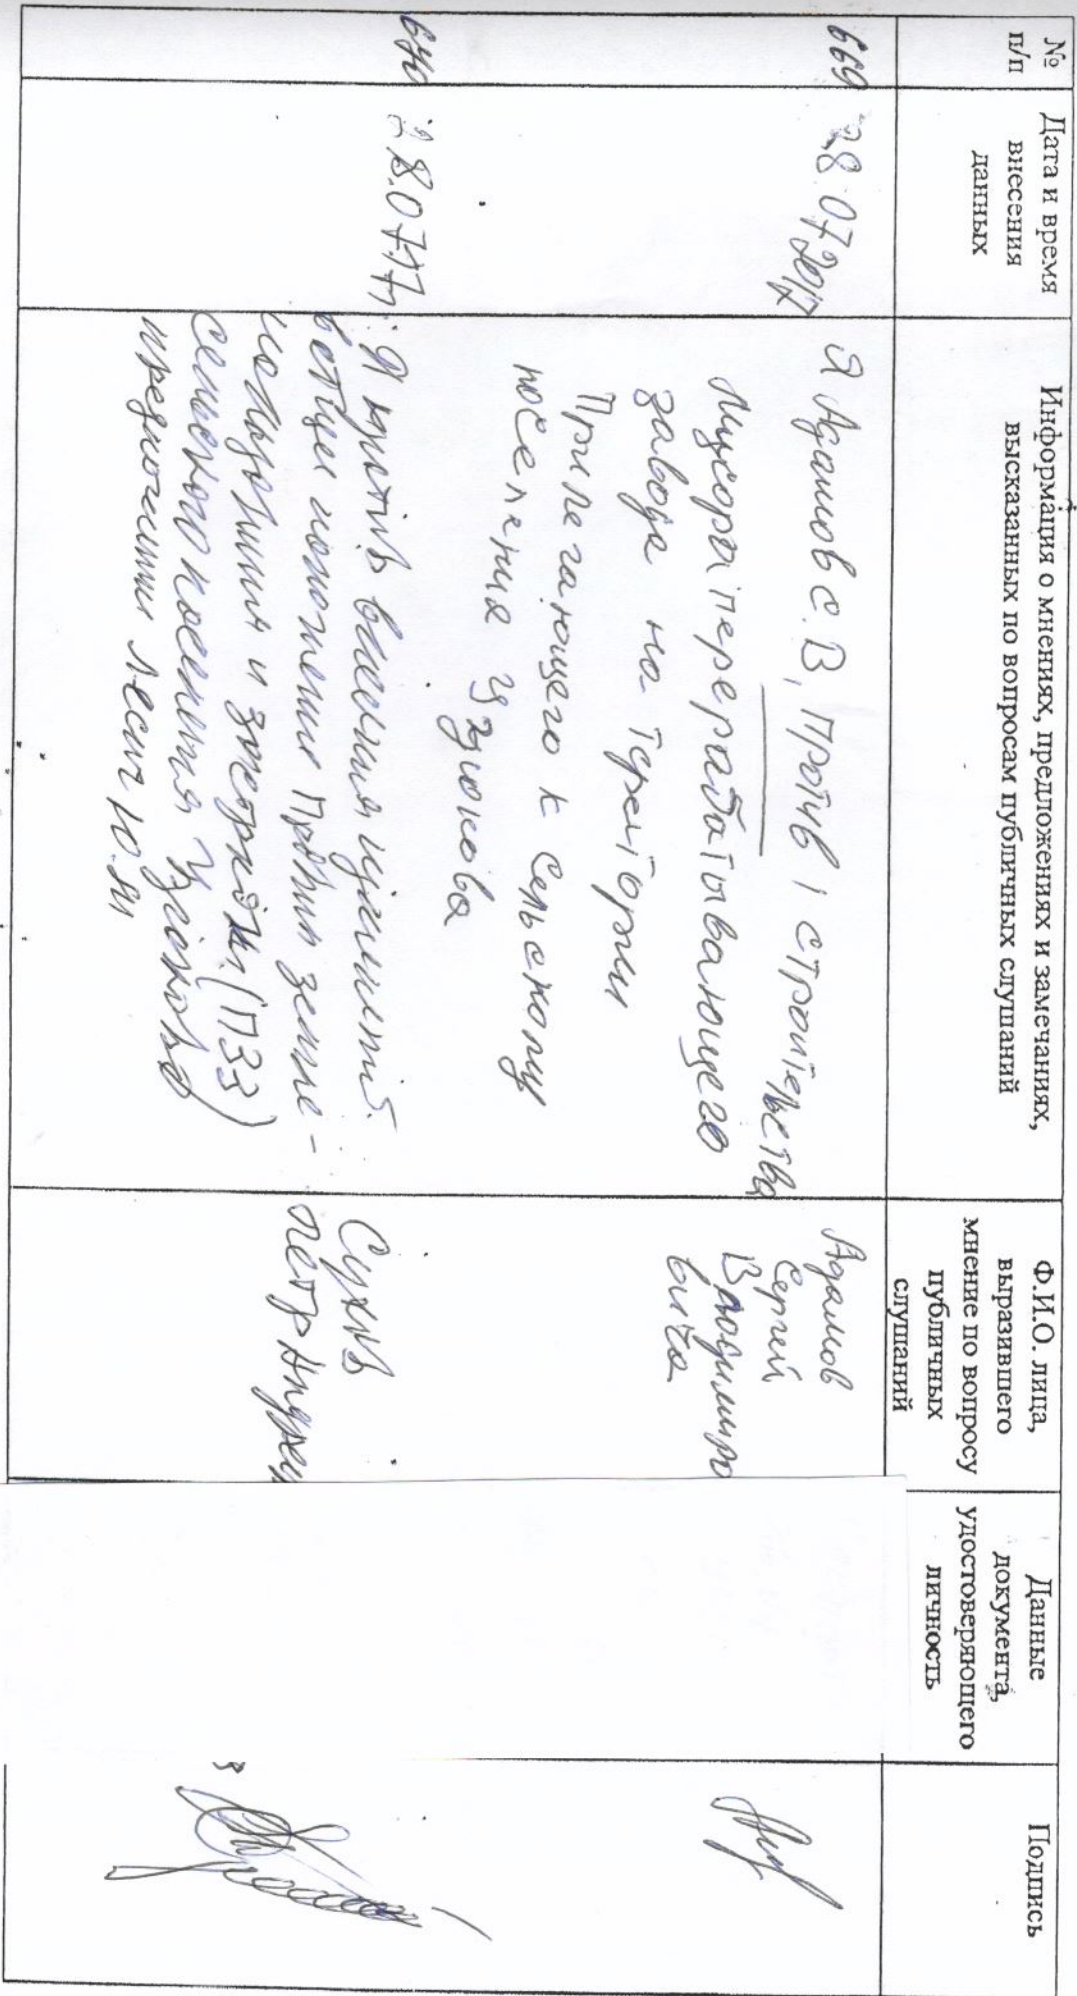 №
п/п
Дата и время
внесения
данных
Информация о мнениях, предложениях и замечаниях,
высказанных по вопросам публичных слушаний
Ф.И.О. лица,
выразившего
мнение по вопросу
публичных
слушаний
Данные
документа,
удостоверяющего
личность
Подпись
669
28.07.2017
Я Адамов С.В, против строительства
мусороперерабатывающего
завода на территории
Прилегающего к сельскому
поселения Узюково
Адамов
Сергей
Владимиро
вича
28.07.17г.
Я против внесения изменений
положение Правил земле-
и застройки (ПЗЗ)
сельского поселения Узюково
Сухов
Петр